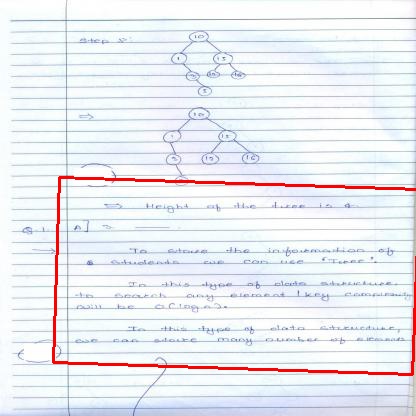 Step 5:
10
1 15
⇒
10
1 15
⇒ Height of the tree is 4.
Q.1. A] →
→ To store the information of
students we can use "Tree".
In this type of data structure,
to search any element / key complexity
will be O(log n).
In this type of data structure,
we can store many number of elements